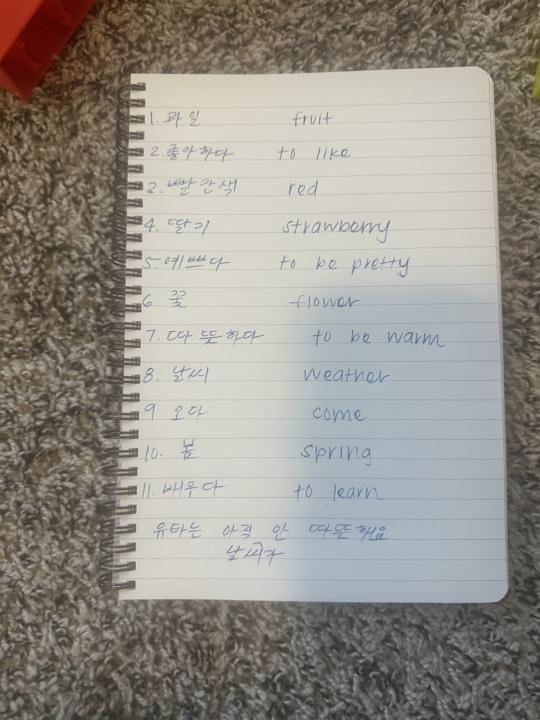 1. 과일 fruit
2. 좋아하다 to like
3. 빨간색 red
4. 딸기 strawberry
5. 예쁘다 to be pretty
6. 꽃 flower
7. 따뜻하다 to be warm
8. 날씨 weather
9 오다 come
10. 봄 spring
11. 배우다 to learn
유타는 아직 안 따뜻해요.
날씨가